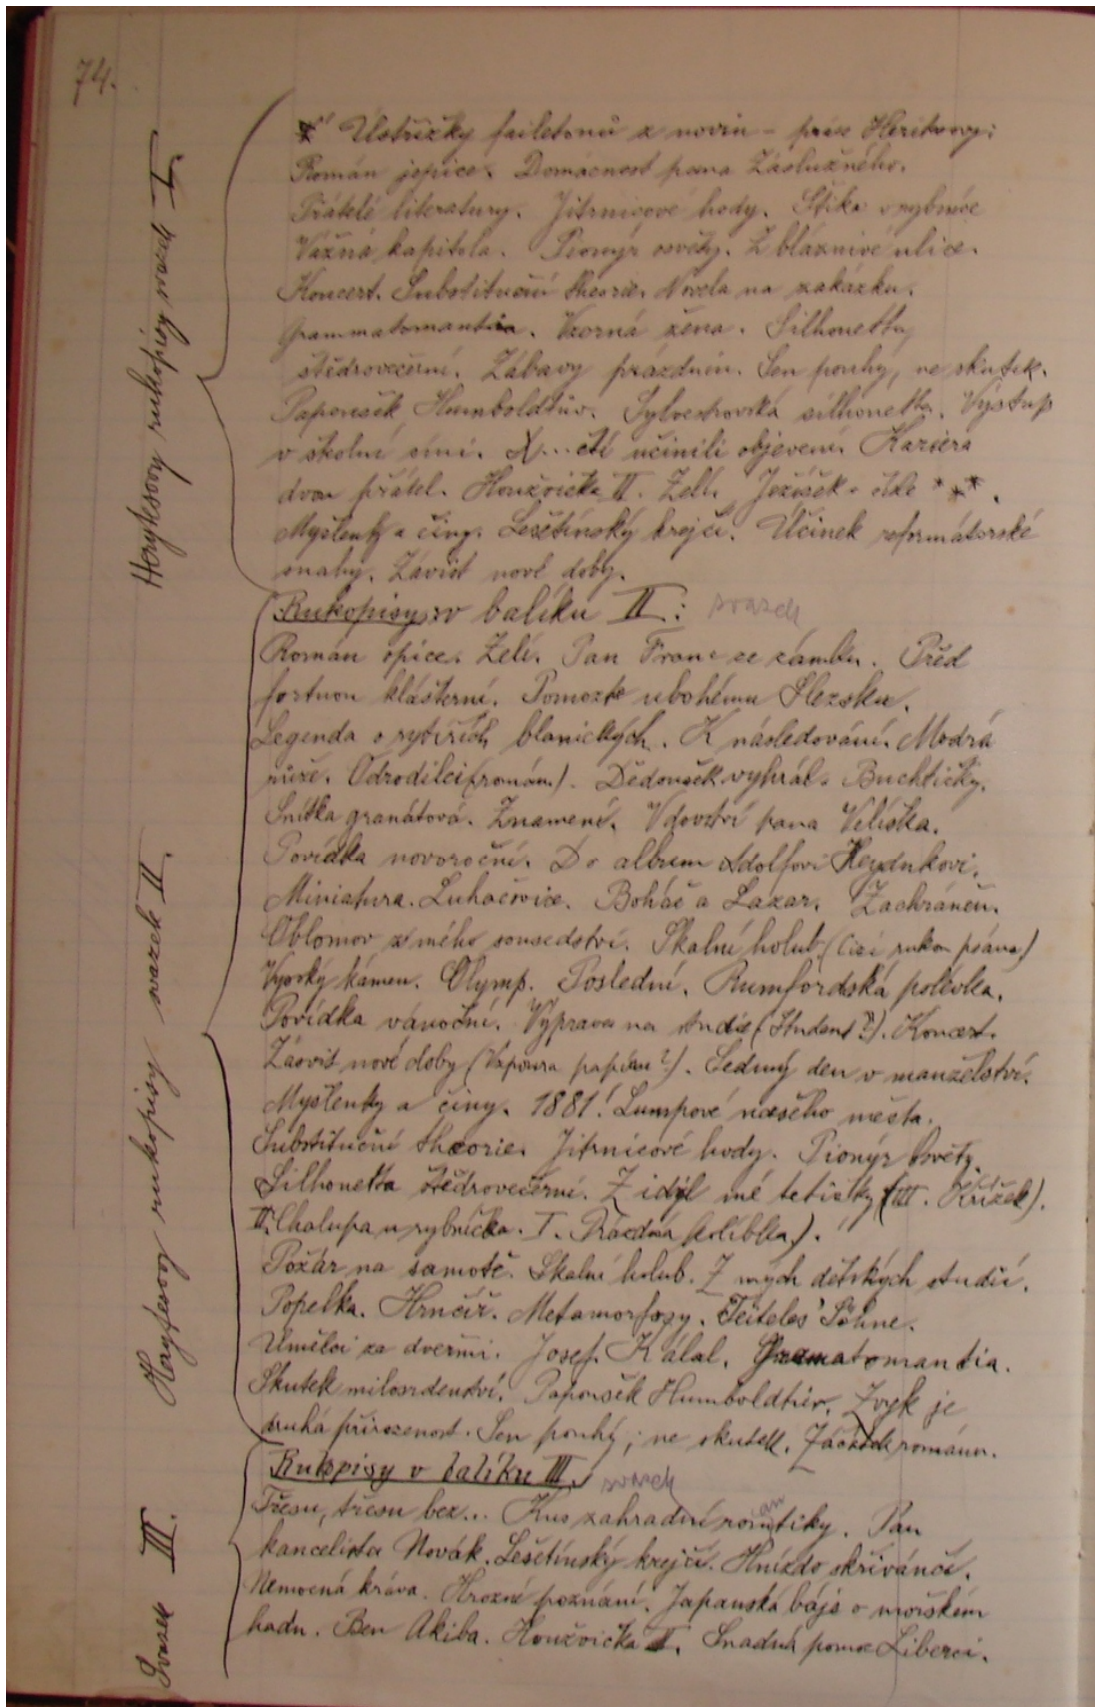 74.
Ústřižky failetonů z novin - práce Heritesovy:
Román jepice. Domácnost pana Záslužného.
Přátelé literatury. Jitrnicové hody. Štika v rybníce
Vážná kapitola. Pionýr osvěty. Z bláznivé ulice.
Koncert. Substituční theorie. Novela na zakázku.
Grammatomantia. Vzorná žena. Silhouetta
štědrovečerní. Zábavy prázdnin. Sen pouhý, ne skutek.
Papoušek Humboldtův. Sylvestrovská silhouetta. Výstup
v školní síni. X...čtí učinili objevení. Kariera
dvou přátel. Houžvička II. Zelí. Ježíšek. ***.
Myšlenky a činy. Lešetínský krejčí. Účinek reformátorské
snahy. Závist nové doby.
Rukopisy v balíku II: svazek
Román opice. Zelí. Pan Franc ze zámku. Před
fortnou klášterní. Pomozte ubohému Slezsku.
Legenda o rytířích blanických. K následování. Modrá
růže. Odrodilci (román). Dědoušek vyhrál. Buchtičky.
Snítka granátová. Znamení. Vdovství pana Velíška.
Povídka novoroční. Do album Adolfovi Heydukovi.
Miniatura. Luhačovice. Boháč a Lazar. Zachráněn.
Oblomov z mého sousedství. Skalní holub (cizí rukou psána)
Vysoký kámen. Olymp. Poslední. Rumfordská polévka.
Povídka vánoční. Výprava na studie (Student?). Koncert.
Závist nové doby (Vzpoura papíru?). Sedmý den v manželství.
Myšlenky a činy. 1881! Lumpové našeho města.
Substituční theorie. Jitrnicové hody. Pionýr osvěty.
Silhouetta štědrovečerní. Z idyl mé tetičky (III. Křížek).
II. Chalupa u rybníčka. I. Prázdná kolíbka).
Požár na samotě. Skalní holub. Z mých dětských studií.
Popelka. Hrnčíř. Metamorfosy. Teiteles' Söhne.
Umělci za dveřmi. Josef Kálal. Gramatomantia.
Skutek milosrdenství. Papoušek Humboldtův. Zvyk je
druhá přirozenost. Sen pouhý; ne skutek. Začátek románu.
Rukopisy v balíku III. svazek
Třesu, třesu bez... Kus zahradní romantiky. Pan
kancelista Novák. Lešetínský krejčí. Hnízdo skřivánčí.
Nemocná kráva. Hrozné poznání. Japanská báje o mořském
hadu. Ben Akiba. Houžvička II. Snadná pomoc Liberci.
Herytesovy rukopisy svazek I.
Herytesovy rukopisy svazek II.
Svazek III.